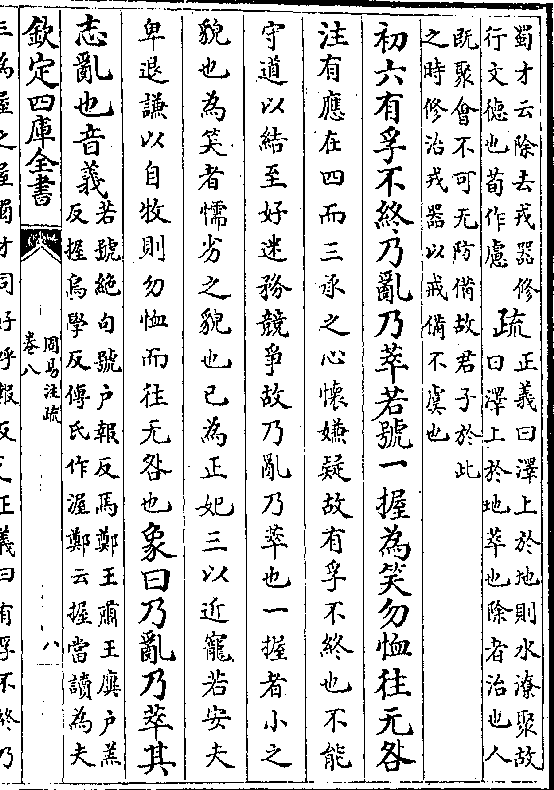 蜀才云除去戎器修
行文德也荀作慮
疏
正義曰澤上於地則水潦聚故
曰澤上於地萃也除者治也人
既聚會不可无防備故君子於此
之時修治戎器以戒備不虞也
初六有孚不終乃亂乃萃若號一握為笑勿恤往无咎
注有應在四而三承之心懷嫌疑故有孚不終也不能
守道以結至好迷務競爭故乃亂乃萃也一握者小之
貌也為笑者懦劣之貌也已為正妃三以近寵若安夫
卑退謙以自牧則勿恤而往无咎也象曰乃亂乃萃其
志亂也音義
若號絶句號户報反馬鄭王肅王廙户羔
反握烏學反傅氏作渥鄭云握當讀為夫
欽定四庫全書
周易注疏
卷八
八
三為屋之屋蜀才同好呼報反
正義曰有孚不終乃